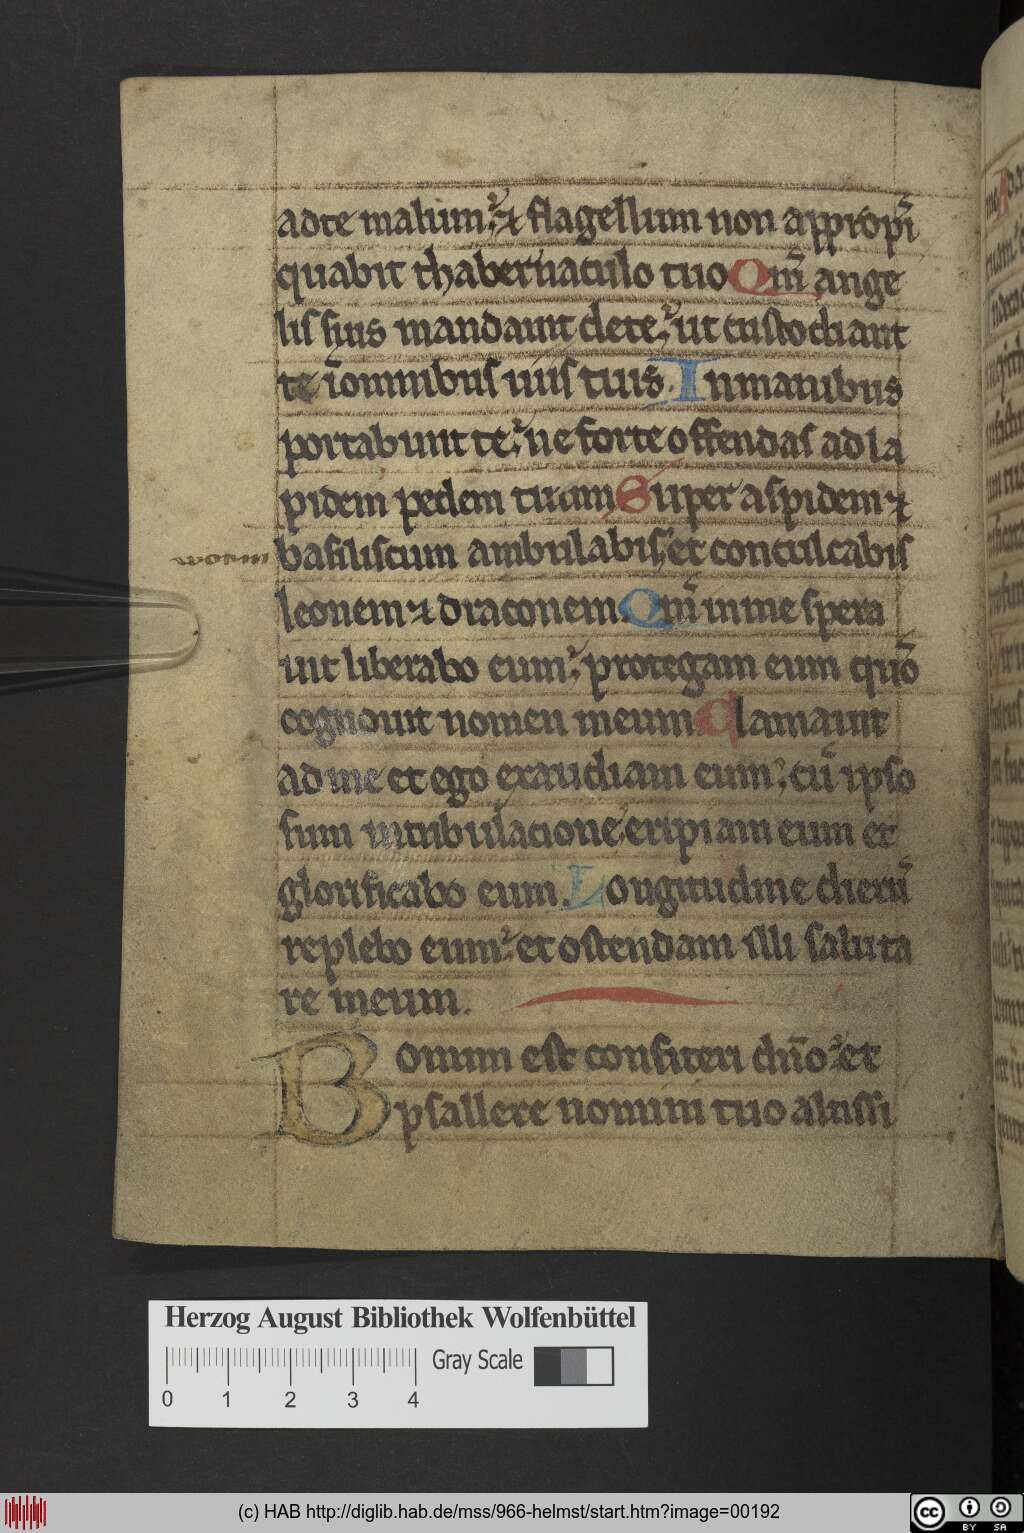 adte malum; ⁊ flagellum non appropi̅
quabit thabernaculo tuo Qm̅ ange
lis suis mandauit dete; ut custodiant
te i̅omnibus uiis tuis. Inmanibus
portabunt te; ne forte offendas ad la
pidem pedem tuum Super aspidem ⁊
worm basiliscum ambulabis; et conculcabis
leonem ⁊ draconem. Qm̅ inme spera
uit liberabo eum; protegam eum quo̅
cognouit nomen meum Clamauit
ad me et ego exaudiam eum; cu̅ ipso
sum intribulacione eripiam eum et
glorificabo eum. Longitudine dieru̅
replebo eum; et ostendam illi saluta
re meum.
Bonum est confiteri dn̅o; et
psallere nomini tuo altissi
Herzog August Bibliothek Wolfenbüttel
Gray Scale
0 1 2 3 4
(c) HAB http://diglib.hab.de/mss/966-helmst/start.htm?image=00192
cc BY SA